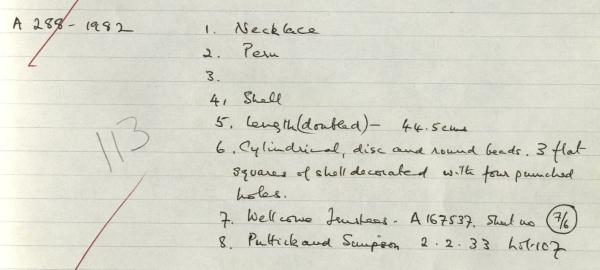 A 288-1982
1. Necklace
2. Peru
3.
4. Shell
5. Length (doubled) - 44.5cms
6. Cylindrical, disc and round beads. 3 flat
squares of shell decorated with four punched
holes.
113
7. Wellcome Trustees. - A 167537. Shel no 7/6
8. Puttick and Simpson 2.2.33 lot.107